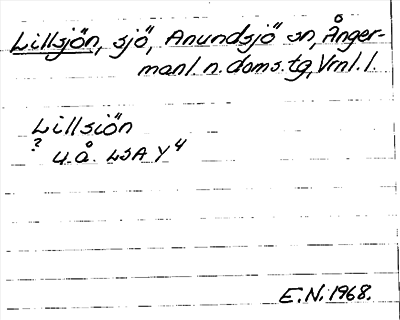 Lillsjön, sjö, Anundsjö sn, Ånger-
manl. n. doms. tg, Vrnl. l.
Lillsiön
? u. å. LSA Y4
E.N. 1968.